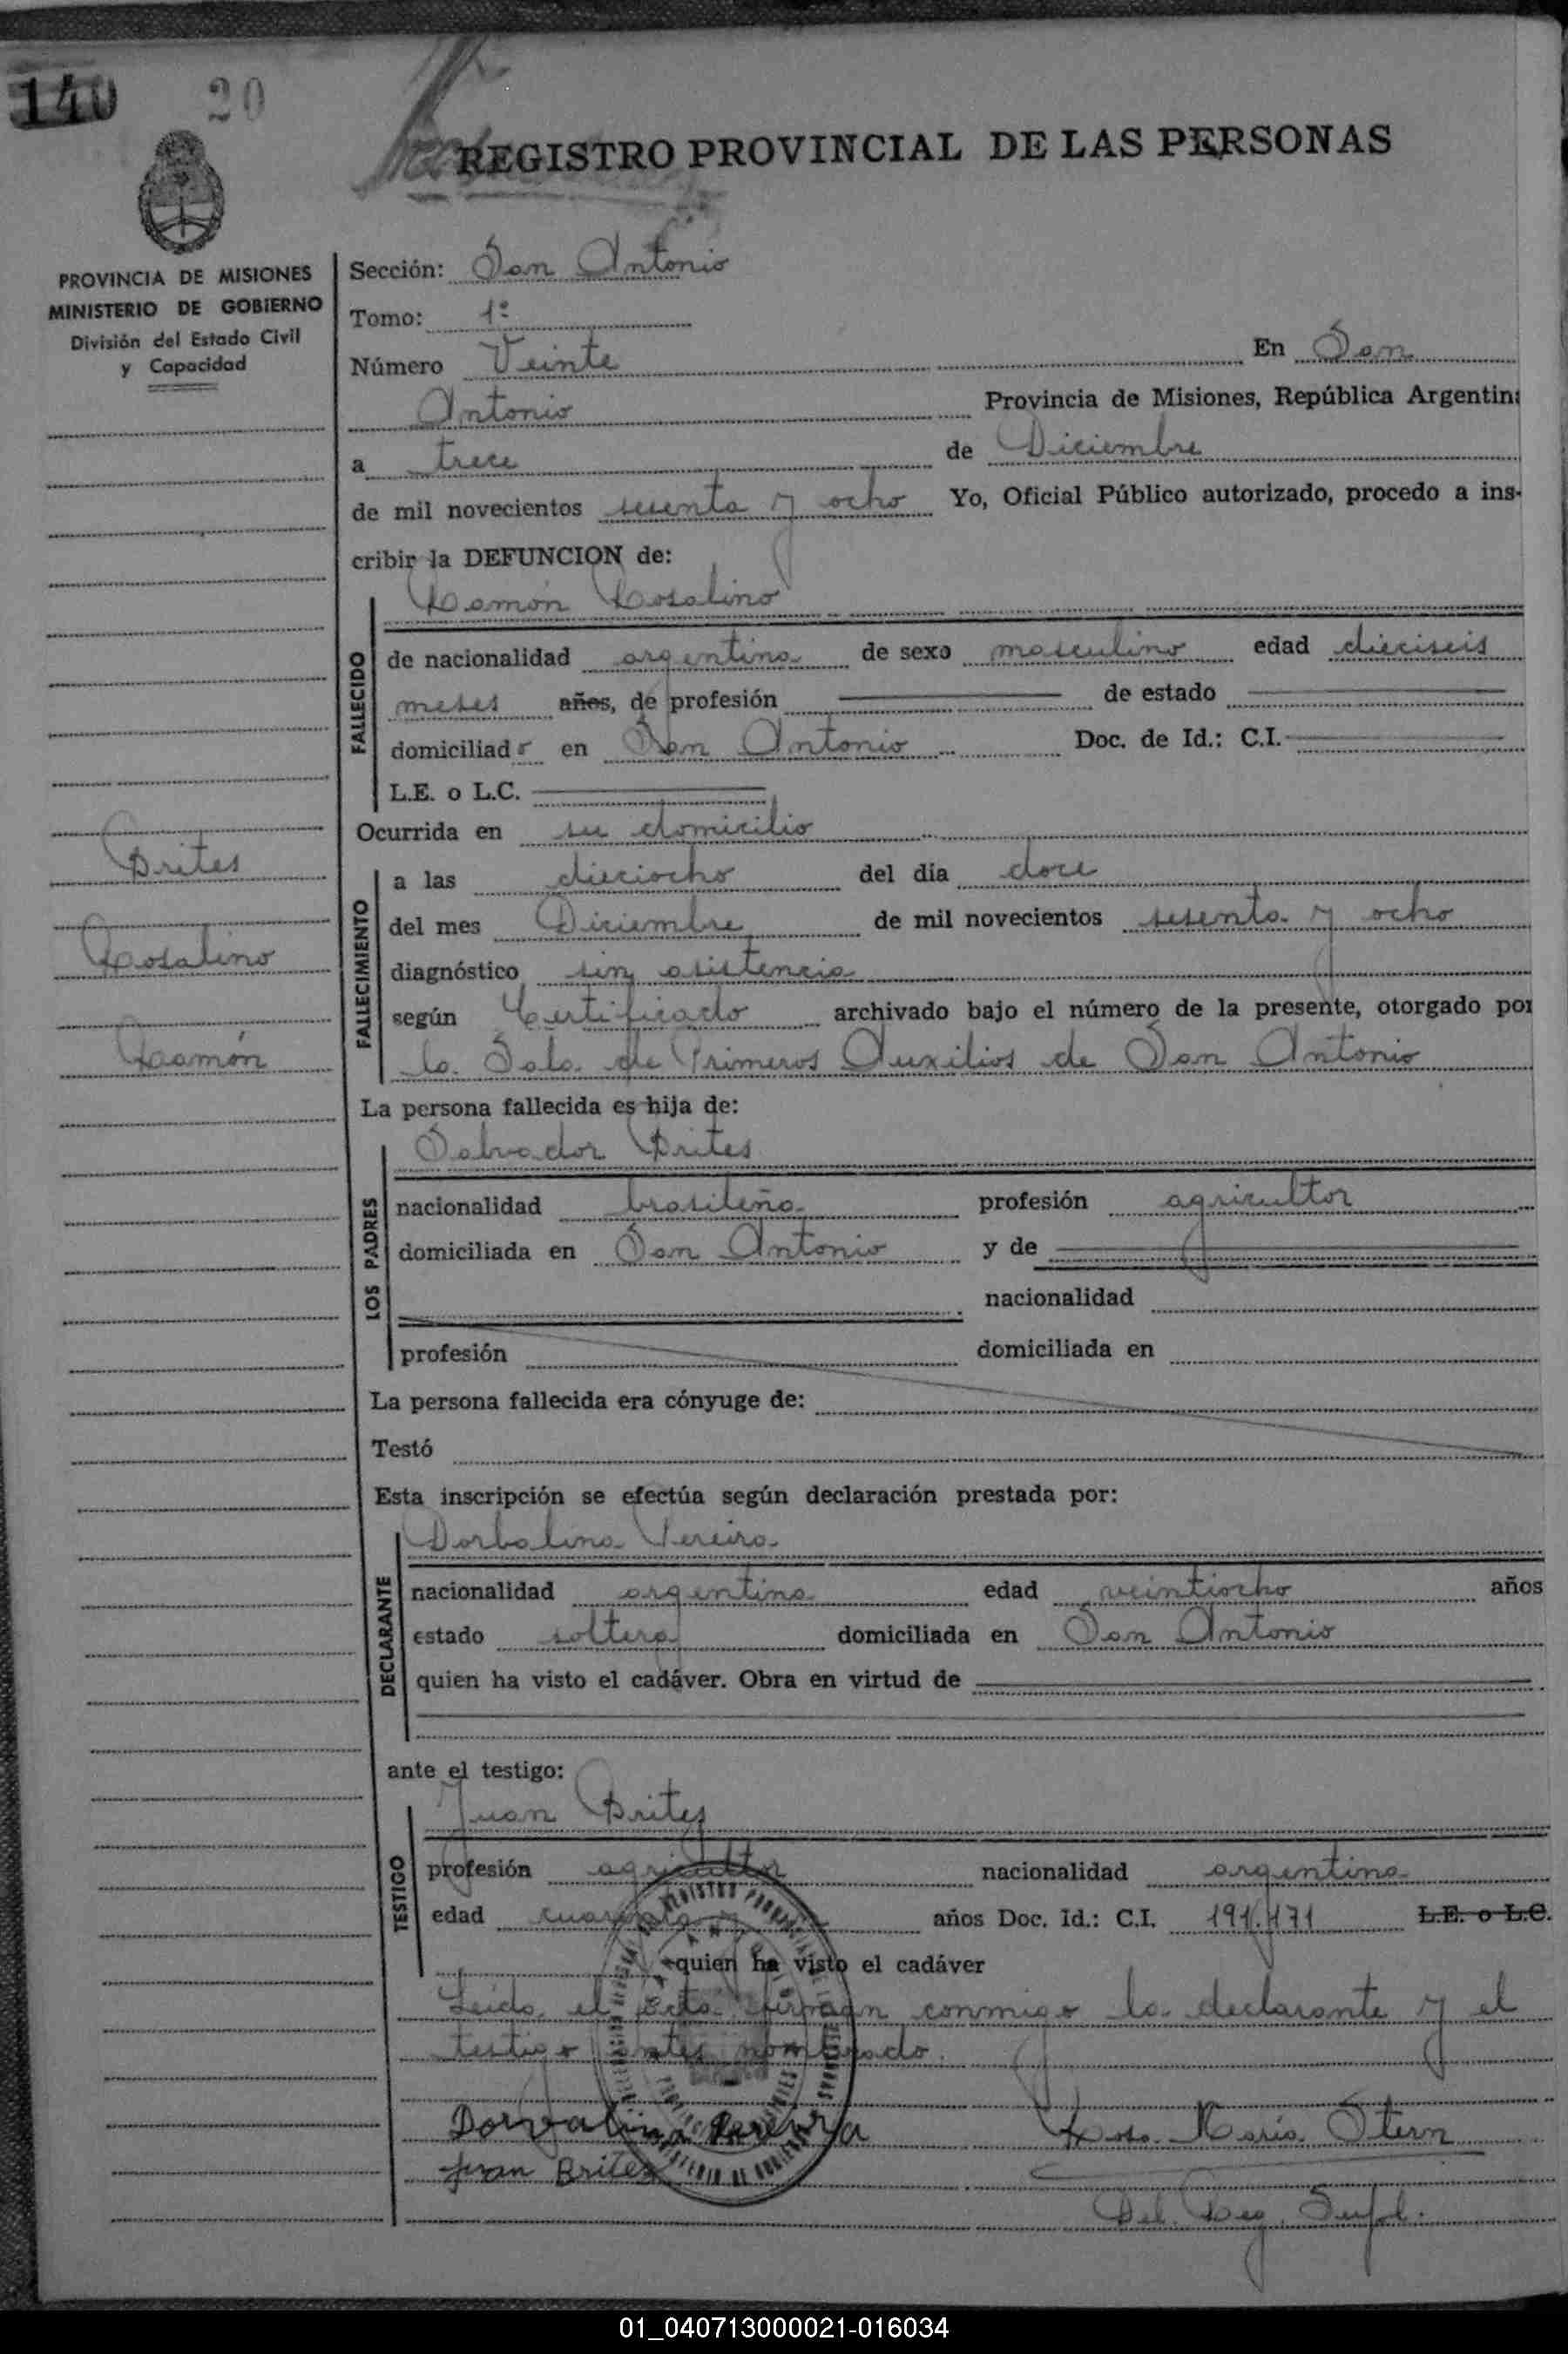 140 20
REGISTRO PROVINCIAL DE LAS PERSONAS
PROVINCIA DE MISIONES
MINISTERIO DE GOBIERNO
División del Estado Civil
y Capacidad
Sección: San Antonio
Tomo: 1º
Número Veinte En San
Antonio Provincia de Misiones, República Argentina
a trece de Diciembre
de mil novecientos sesenta y ocho Yo, Oficial Público autorizado, procedo a ins-
cribir la DEFUNCION de:
Ramón Rosalino
FALLECIDO
de nacionalidad argentina de sexo masculino edad dieciseis
meses años, de profesión de estado
domiciliado en San Antonio Doc. de Id.: C.I.
L.E. o L.C.
Ocurrida en su domicilio
Brites
Rosalino
Ramón
FALLECIMIENTO
a las dieciocho del día doce
del mes Diciembre de mil novecientos sesenta y ocho
diagnóstico sin asistencia
según Certificado archivado bajo el número de la presente, otorgado por
la Sala de Primeros Auxilios de San Antonio
La persona fallecida es hija de:
Salvador Brites
LOS PADRES
nacionalidad brasileña profesión agricultor
domiciliada en San Antonio y de
nacionalidad
profesión domiciliada en
La persona fallecida era cónyuge de:
Testó
Esta inscripción se efectúa según declaración prestada por:
Dorbalina Pereira
DECLARANTE
nacionalidad argentina edad veintiocho años
estado soltera domiciliada en San Antonio
quien ha visto el cadáver. Obra en virtud de
ante el testigo:
Juan Brites
TESTIGO
profesión agricultor nacionalidad argentina
edad cuarenta y años Doc. Id.: C.I. 191.171 L.E. o L.C.
quien ha visto el cadáver
Leida el acta firman conmigo la declarante y el
testigo antes nombrado.
Dorvalina Pereira Rosa María Stern
Juan Brites
Del. Reg. Supl.
01_040713000021-016034